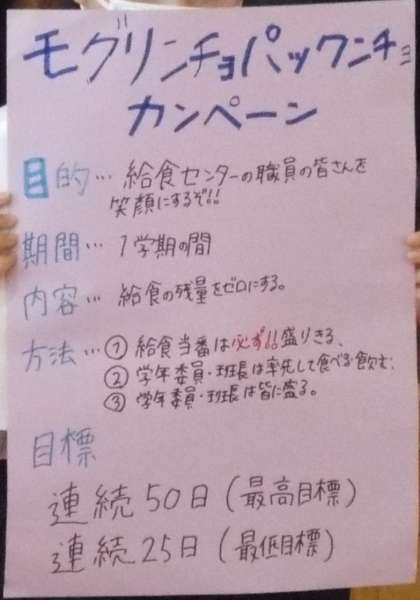 モグリンチョパックンチョ
カンペーン
目的…給食センターの職員の皆さんを
笑顔にするぞ!!
期間…1学期の間
内容…給食の残量をゼロにする。
方法…①給食当番は必ず!!盛りきる、
②学年委員・班長は率先して食べる・飲む、
③学年委員・班長は皆に盛る。
目標
連続50日(最高目標)
連続25日(最低目標)